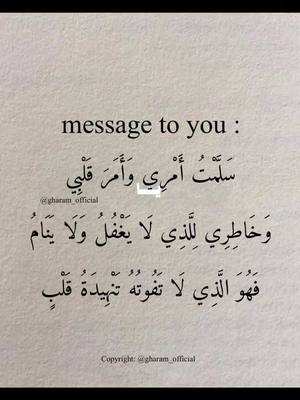 message to you :
سَلَّمْتُ أَمْرِي وَأَمَرَ قَلْبِي
@gharam_official
وَخَاطِرِي لِلَّذِي لَا يَغْفُلُ وَلَا يَنَامُ
فَهُوَ الَّذِي لَا تَفُوتُهُ تَنْهِيدَةُ قَلْبٍ
Copyright: @gharam_official